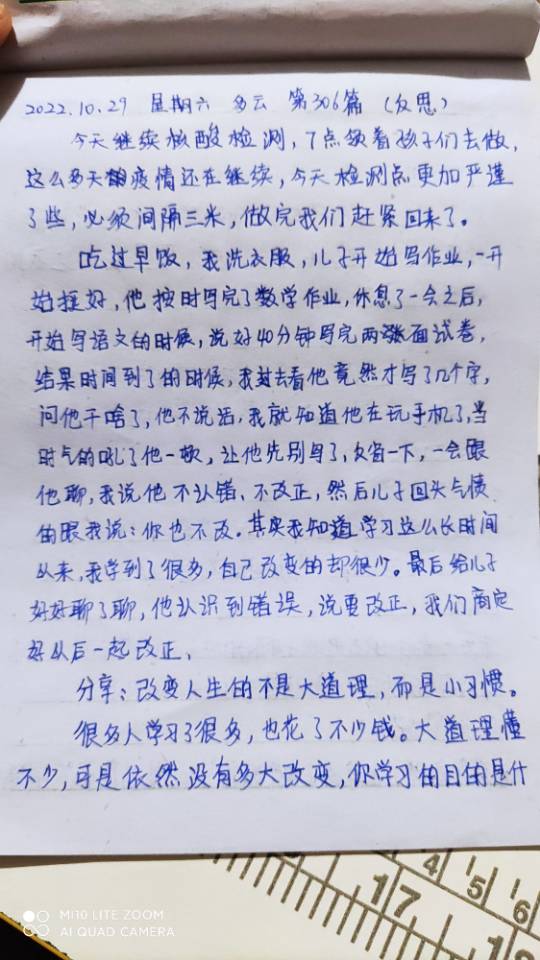 2022.10.29 星期六 多云 第306篇 (反思)
今天继续核酸检测,7点领着孩子们去做,
这么多天疫情还在继续,今天检测点更加严谨
了些,必须间隔三米,做完我们赶紧回来了。
吃过早饭,我洗衣服,儿子开始写作业,一开
始挺好,他按时写完了数学作业,休息了一会之后,
开始写语文的时候,说好40分钟写完两张面试卷,
结果时间到了的时候,我过去看他竟然才写了几个字,
问他干啥了,他不说话,我就知道他在玩手机了,当
时气的吼了他一顿,让他先别写了,反省一下,一会跟
他聊,我说他不认错、不改正,然后儿子回头气愤
的跟我说:你也不改。其实我知道学习这么长时间
以来,我学到了很多,自己改变的却很少。最后给儿子
好好聊了聊,他认识到错误,说要改正,我们商定
好以后一起改正、
分享:改变人生的不是大道理,而是小习惯。
很多人学习了很多,也花了不少钱。大道理懂
不少,可是依然没有多大改变,你学习的目的是什
4 5 6
17
MI 10 LITE ZOOM
AI QUAD CAMERA